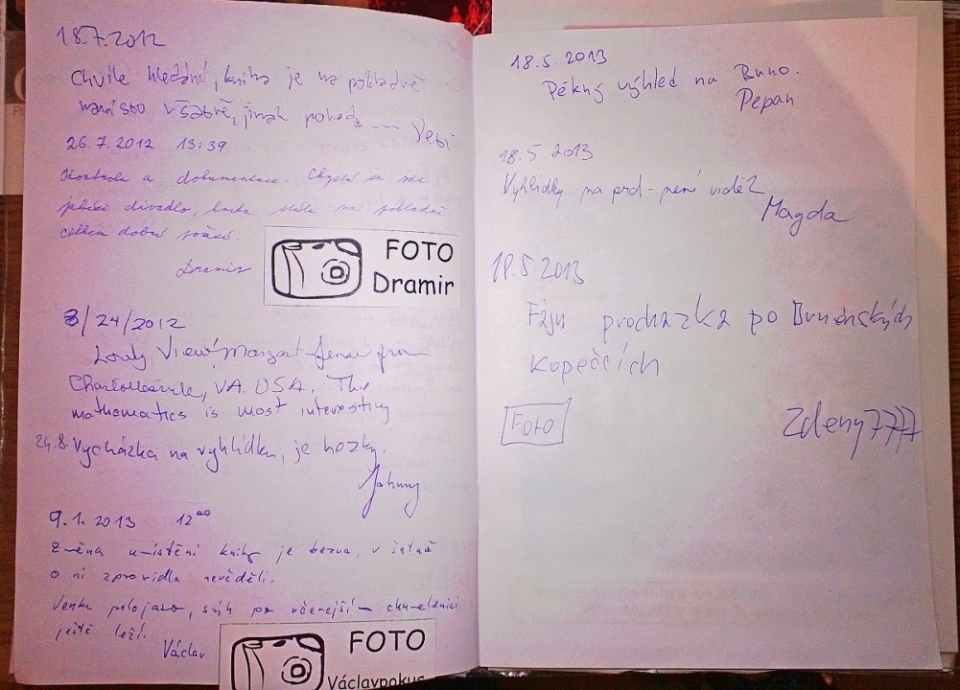 18.7.2012
Chvíle hledání, kniha je na pokladně
v šatně, jinak pohoda
26.7.2012 13:39
Kontrola a dokumentace. Chystá se zde
divadlo, kniha stále na pokladně.
celkem dobré počasí.
Dramir
FOTO
Dramir
8/24/2012
Lovely View! Margaret from
Charlottesville, VA. USA. The
mathematics is most interesting
24.8. Vycházka na vyhlídku, je hezky.
Johnny
9.1.2013 12⁰⁰
Změna umístění knihy je bezva, v šatně
o ní zpravidla nevěděli.
Venku polojasno, sníh po včerejší chumelenici
ještě leží.
Václav
FOTO
Václavpokus
18.5.2013
Pěkný výhled na Brno.
Pepan
18.5.2013
Vyhlídky na prd - není vidět
Magda
18.5.2013
Fajn prochazka po Brněnských
kopečcích
FOTO
Zdeny777